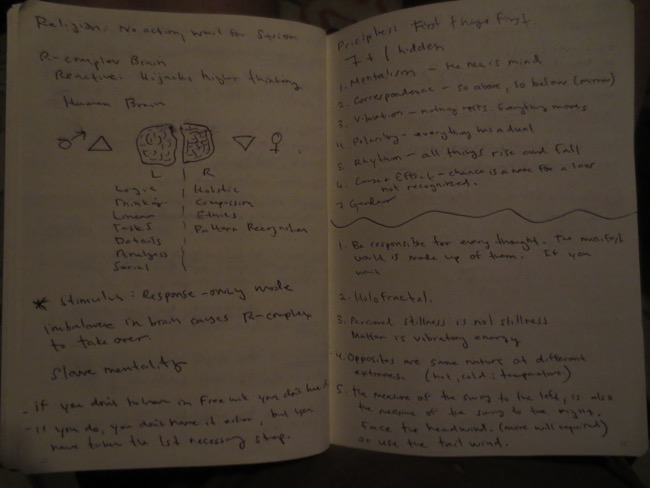 Religion: No action, wait for Savior
R-complex Brain
Reactive: Hijacks higher thinking
Human Brain
L R
Logic Holistic
Thinking Compassion
Linear Ethics
Tasks Pattern Recognition
Details
Analyses
Serial
* Stimulus: Response-only mode
imbalance in brain causes R-complex
to take over.
Slave mentality
- if you don't believe in Free will you don't have it
- if you do, you don't have it either, but you
have taken the 1st necessary step.
Principles: First things first.
7 + 1 hidden
1. Mentalism - the all is mind
2. Correspondence - so above, so below (mirror)
3. Vibration - nothing rests. Everything moves
4. Polarity - everything has a dual
5. Rhythm - all things rise and fall
6. Cause + Effect - chance is a name for a law
not recognized.
7 Gender
1. Be responsible for every thought. The manifest
world is made up of them. If you
2. Holofractal.
3. Perceived stillness is not stillness
Matter is vibratory energy
4. Opposites are same nature at different
extremes. (hot, cold: temperature)
5. The measure of the swing to the left, is also
the measure of the swing to the right.
Face the headwind. (more will required)
or use the tail wind.